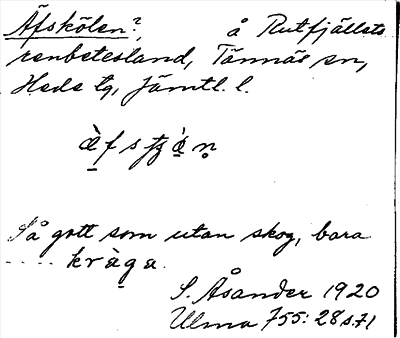 Äfskölen?, å Rutfjällets
renbetesland, Tännäs sn,
Hede tg, Jämtl. l.
Så gott som utan skog, bara
.... kràga.
S. Åsander 1920
Ulma 755: 28 s. 71